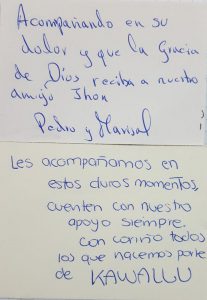 Acompañando en su
dolor y que la Gracia
de Dios reciba a nuestro
amigo Jhon
Pedro y Marisol
Les acompañamos en
estos duros momentos,
cuenten con nuestro
apoyo siempre.
con cariño todos
los que hacemos parte
de KAWALLU